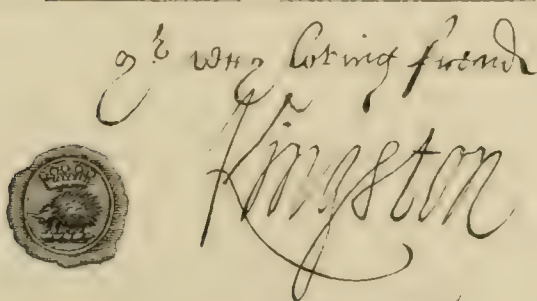 yr very loving friend
Kingston